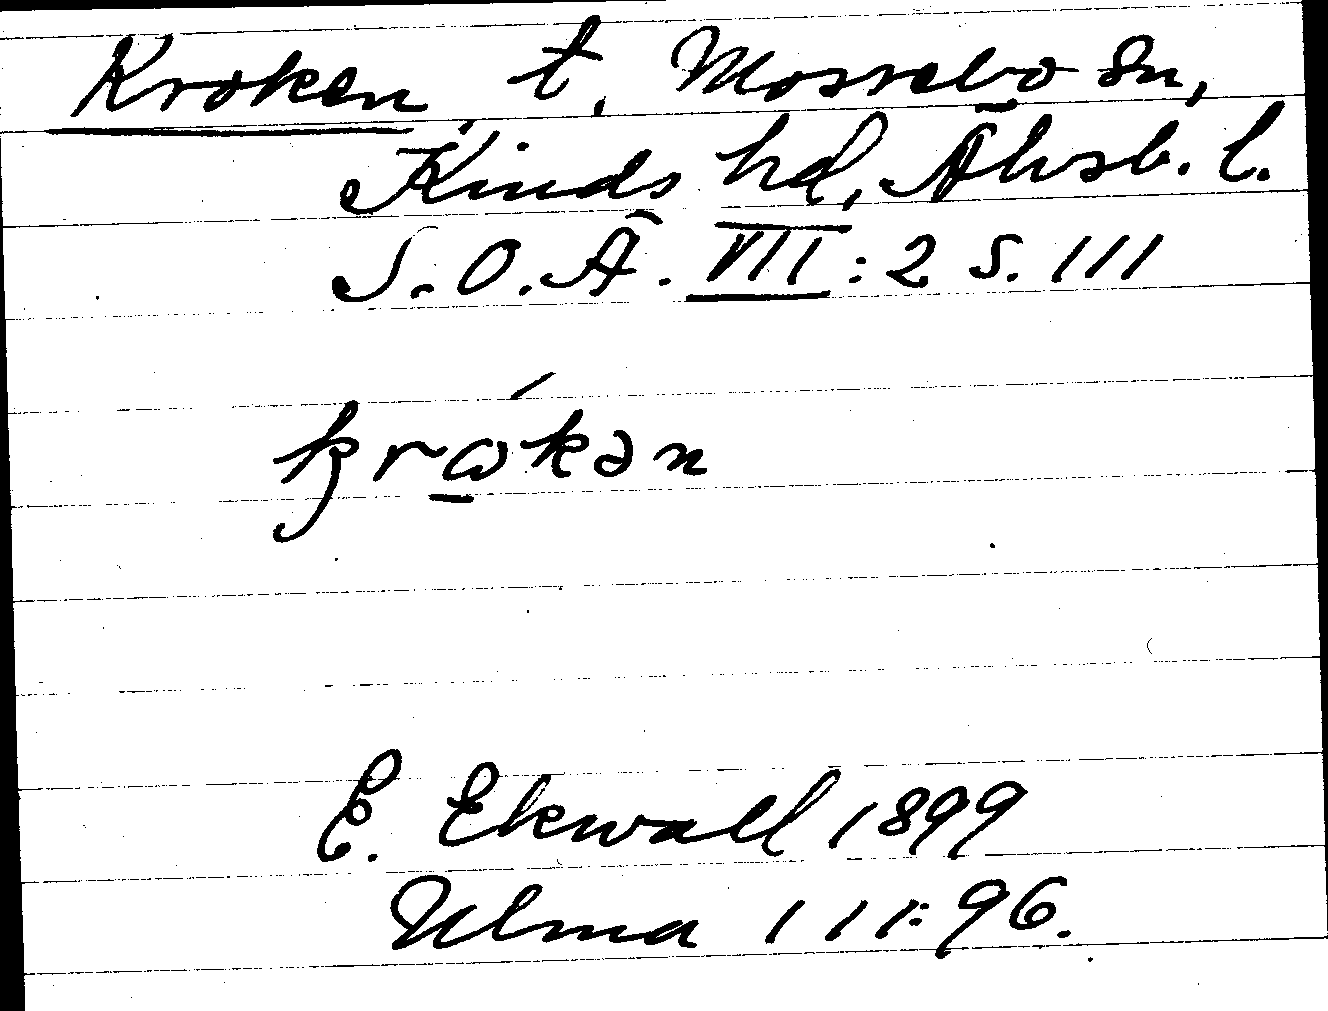 Kroken, t. Mossebo sn,
Kinds hd, Älvsb. l.
S.O.Ä. VII : 2 S. 111
krωkən
E. Ekwall 1899
Ulma 111:96.